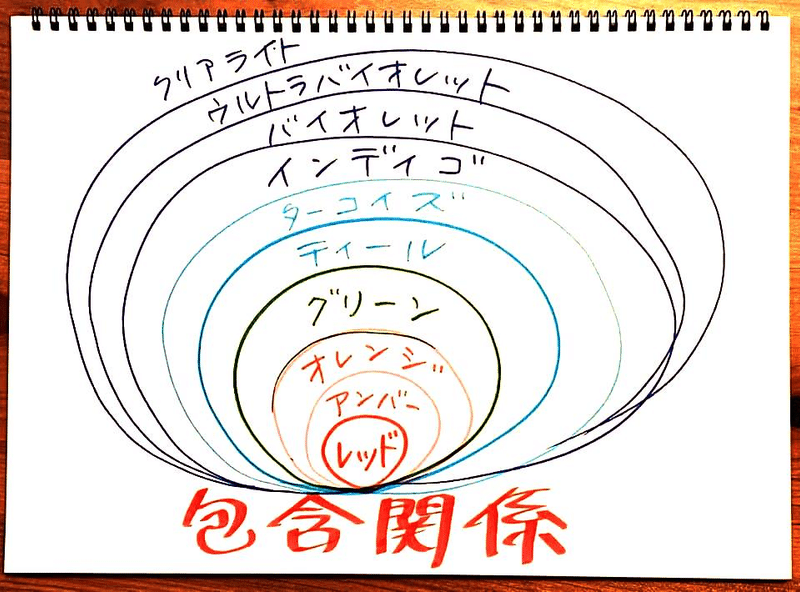 クリアライト
ウルトラバイオレット
バイオレット
インディゴ
ターコイズ
ティール
グリーン
オレンジ
アンバー
レッド
包含関係